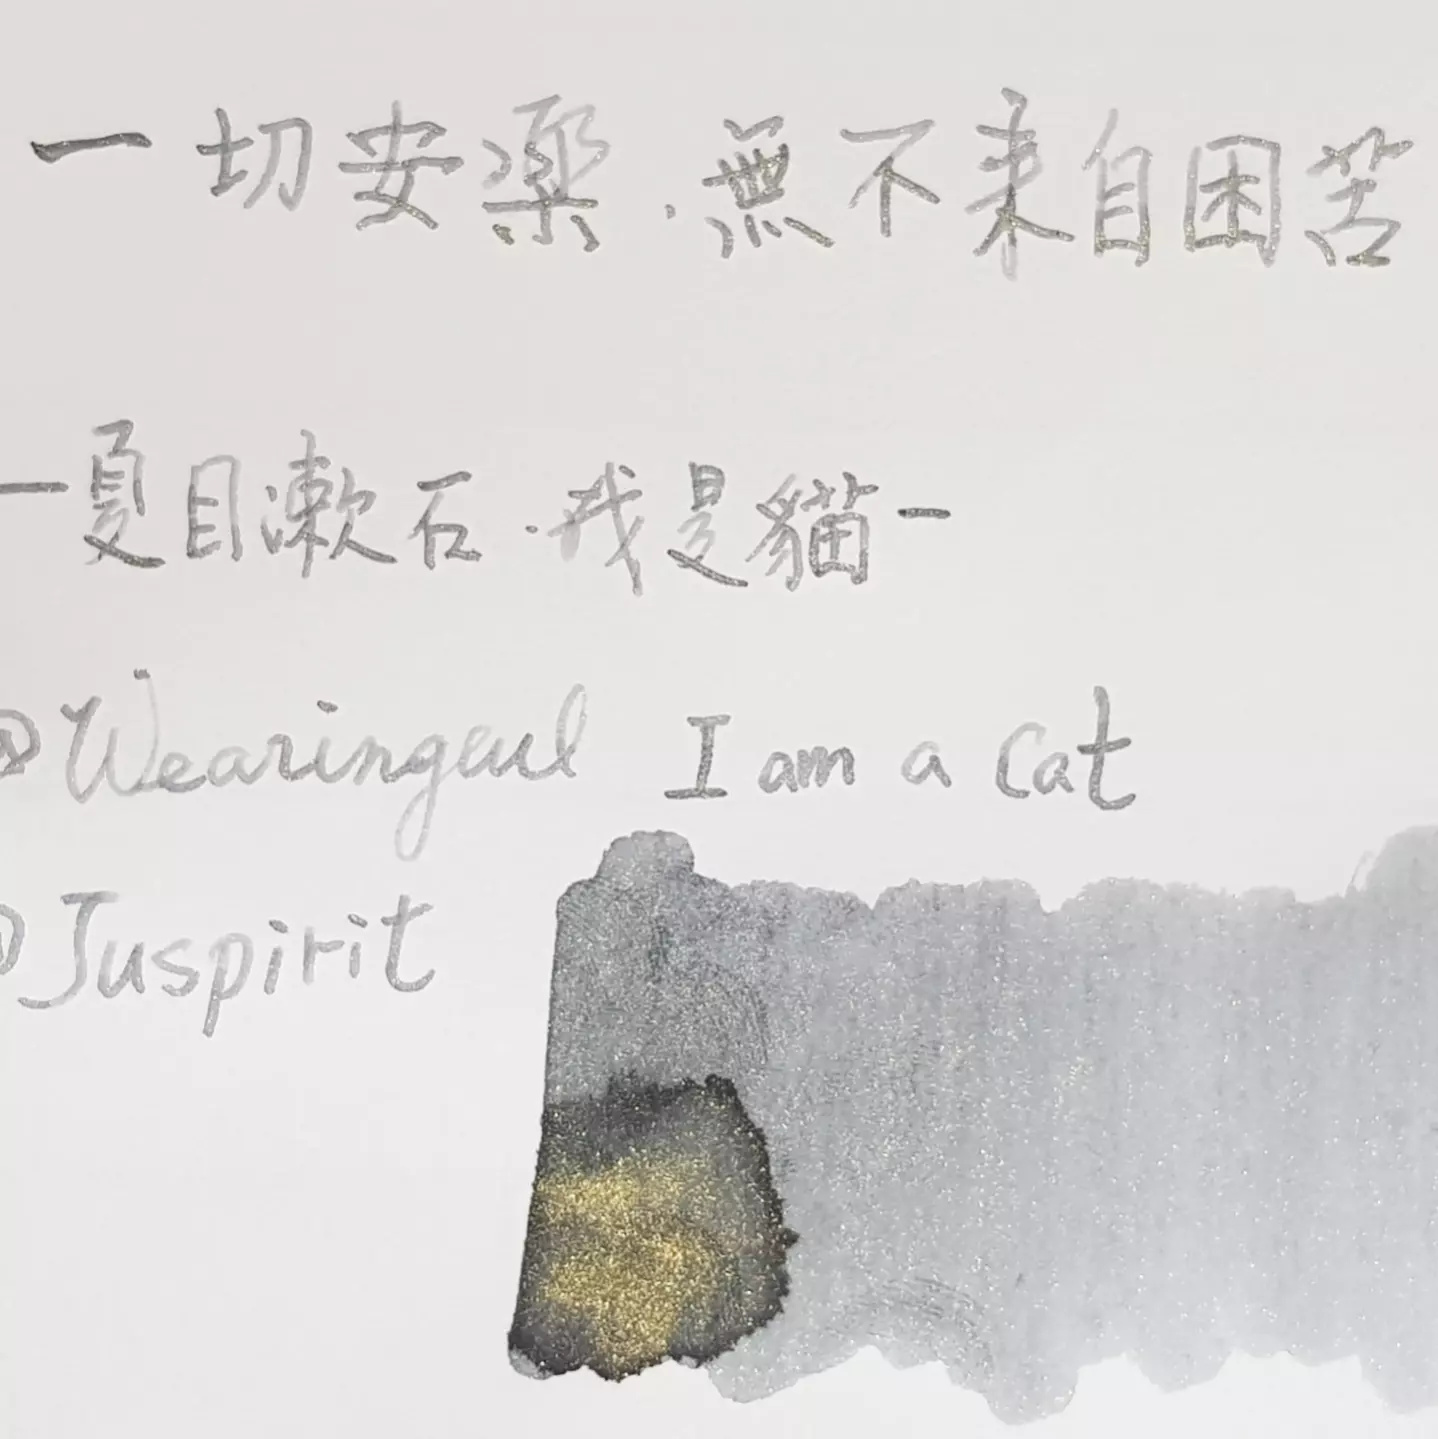 一切安樂．無不来自困苦
—夏目漱石．我是貓—
@Wearingeul I am a Cat
@Juspirit